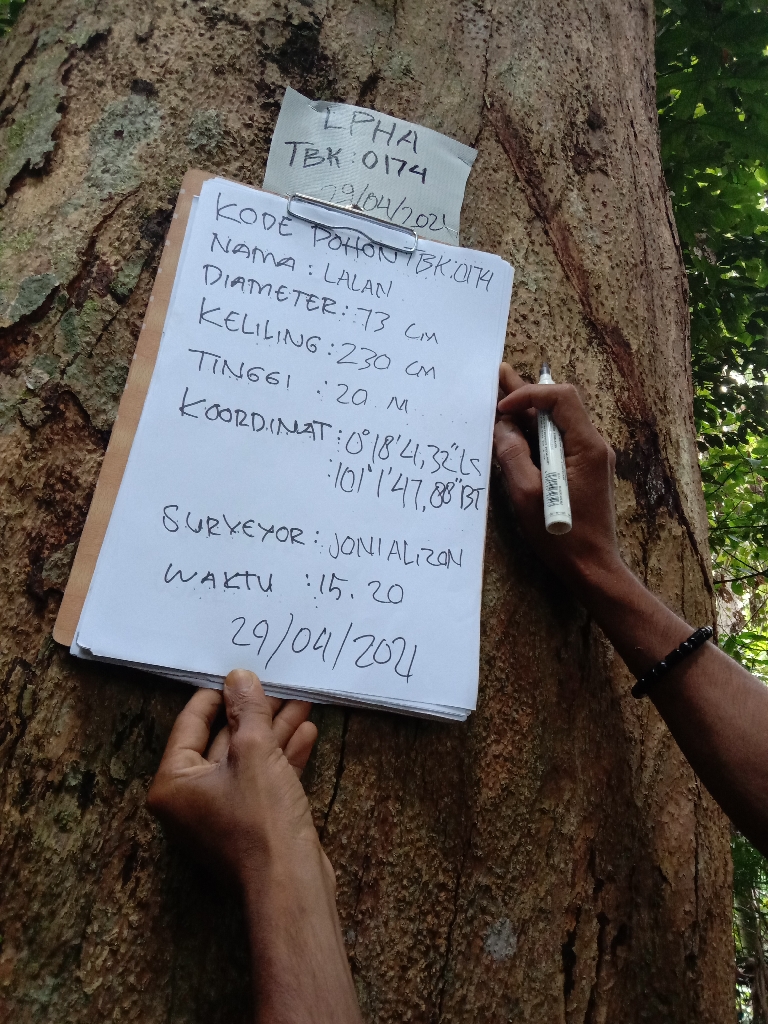 LPHA
TBK : 0174
29/04/2021
KODE POHON TBK:0174
NAMA : LALAN
DIAMETER : 73 CM
KELILING : 230 CM
TINGGI : 20 M
KOORDINAT : 0°18'41,32"LS
: 101°1'47,88"BT
SURVEYOR : JONI ALIZON
WAKTU : 15.20
29/04/2021